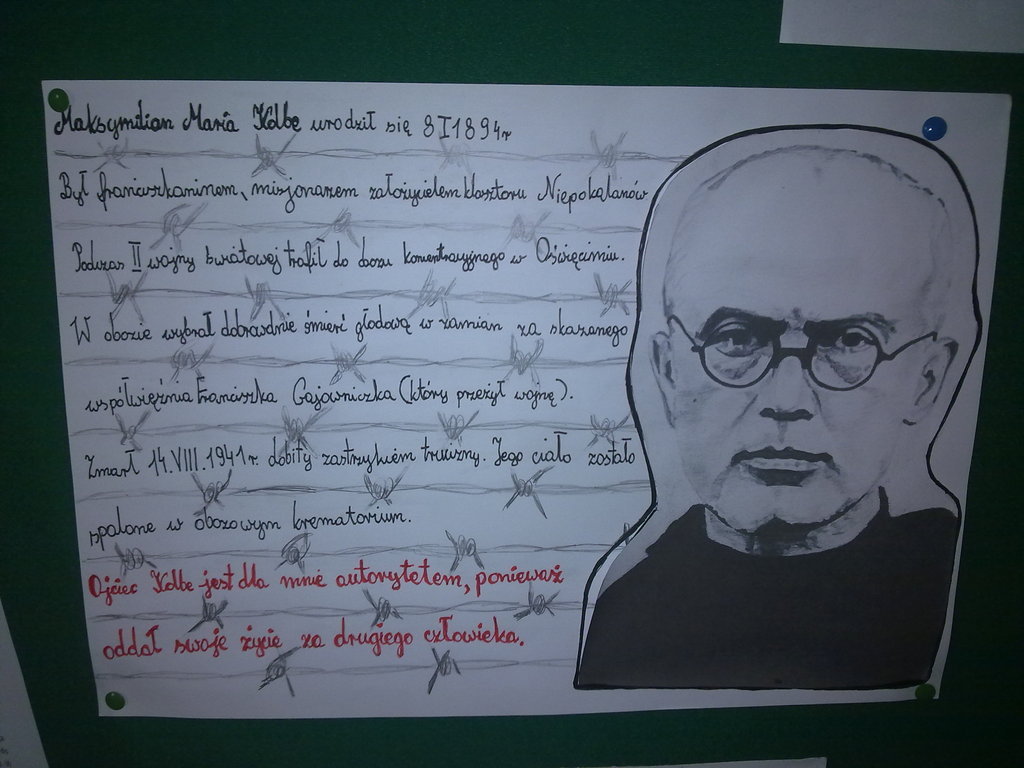 Maksymilian Maria Kolbe urodził się 8 I 1894r
Był franciszkaninem, misjonarzem założycielem klasztoru Niepokalanów
Podczas II wojny światowej trafił do obozu koncentracyjnego w Oświęcimiu.
W obozie wybrał dobrowolnie śmierć głodową w zamian za skazanego
współwięźnia Franciszka Gajowniczka (który przeżył wojnę).
Zmarł 14.VIII.1941r. dobity zastrzykiem trucizny. Jego ciało zostało
spalone w obozowym krematorium.
Ojciec Kolbe jest dla mnie autorytetem, ponieważ
oddał swoje życie za drugiego człowieka.